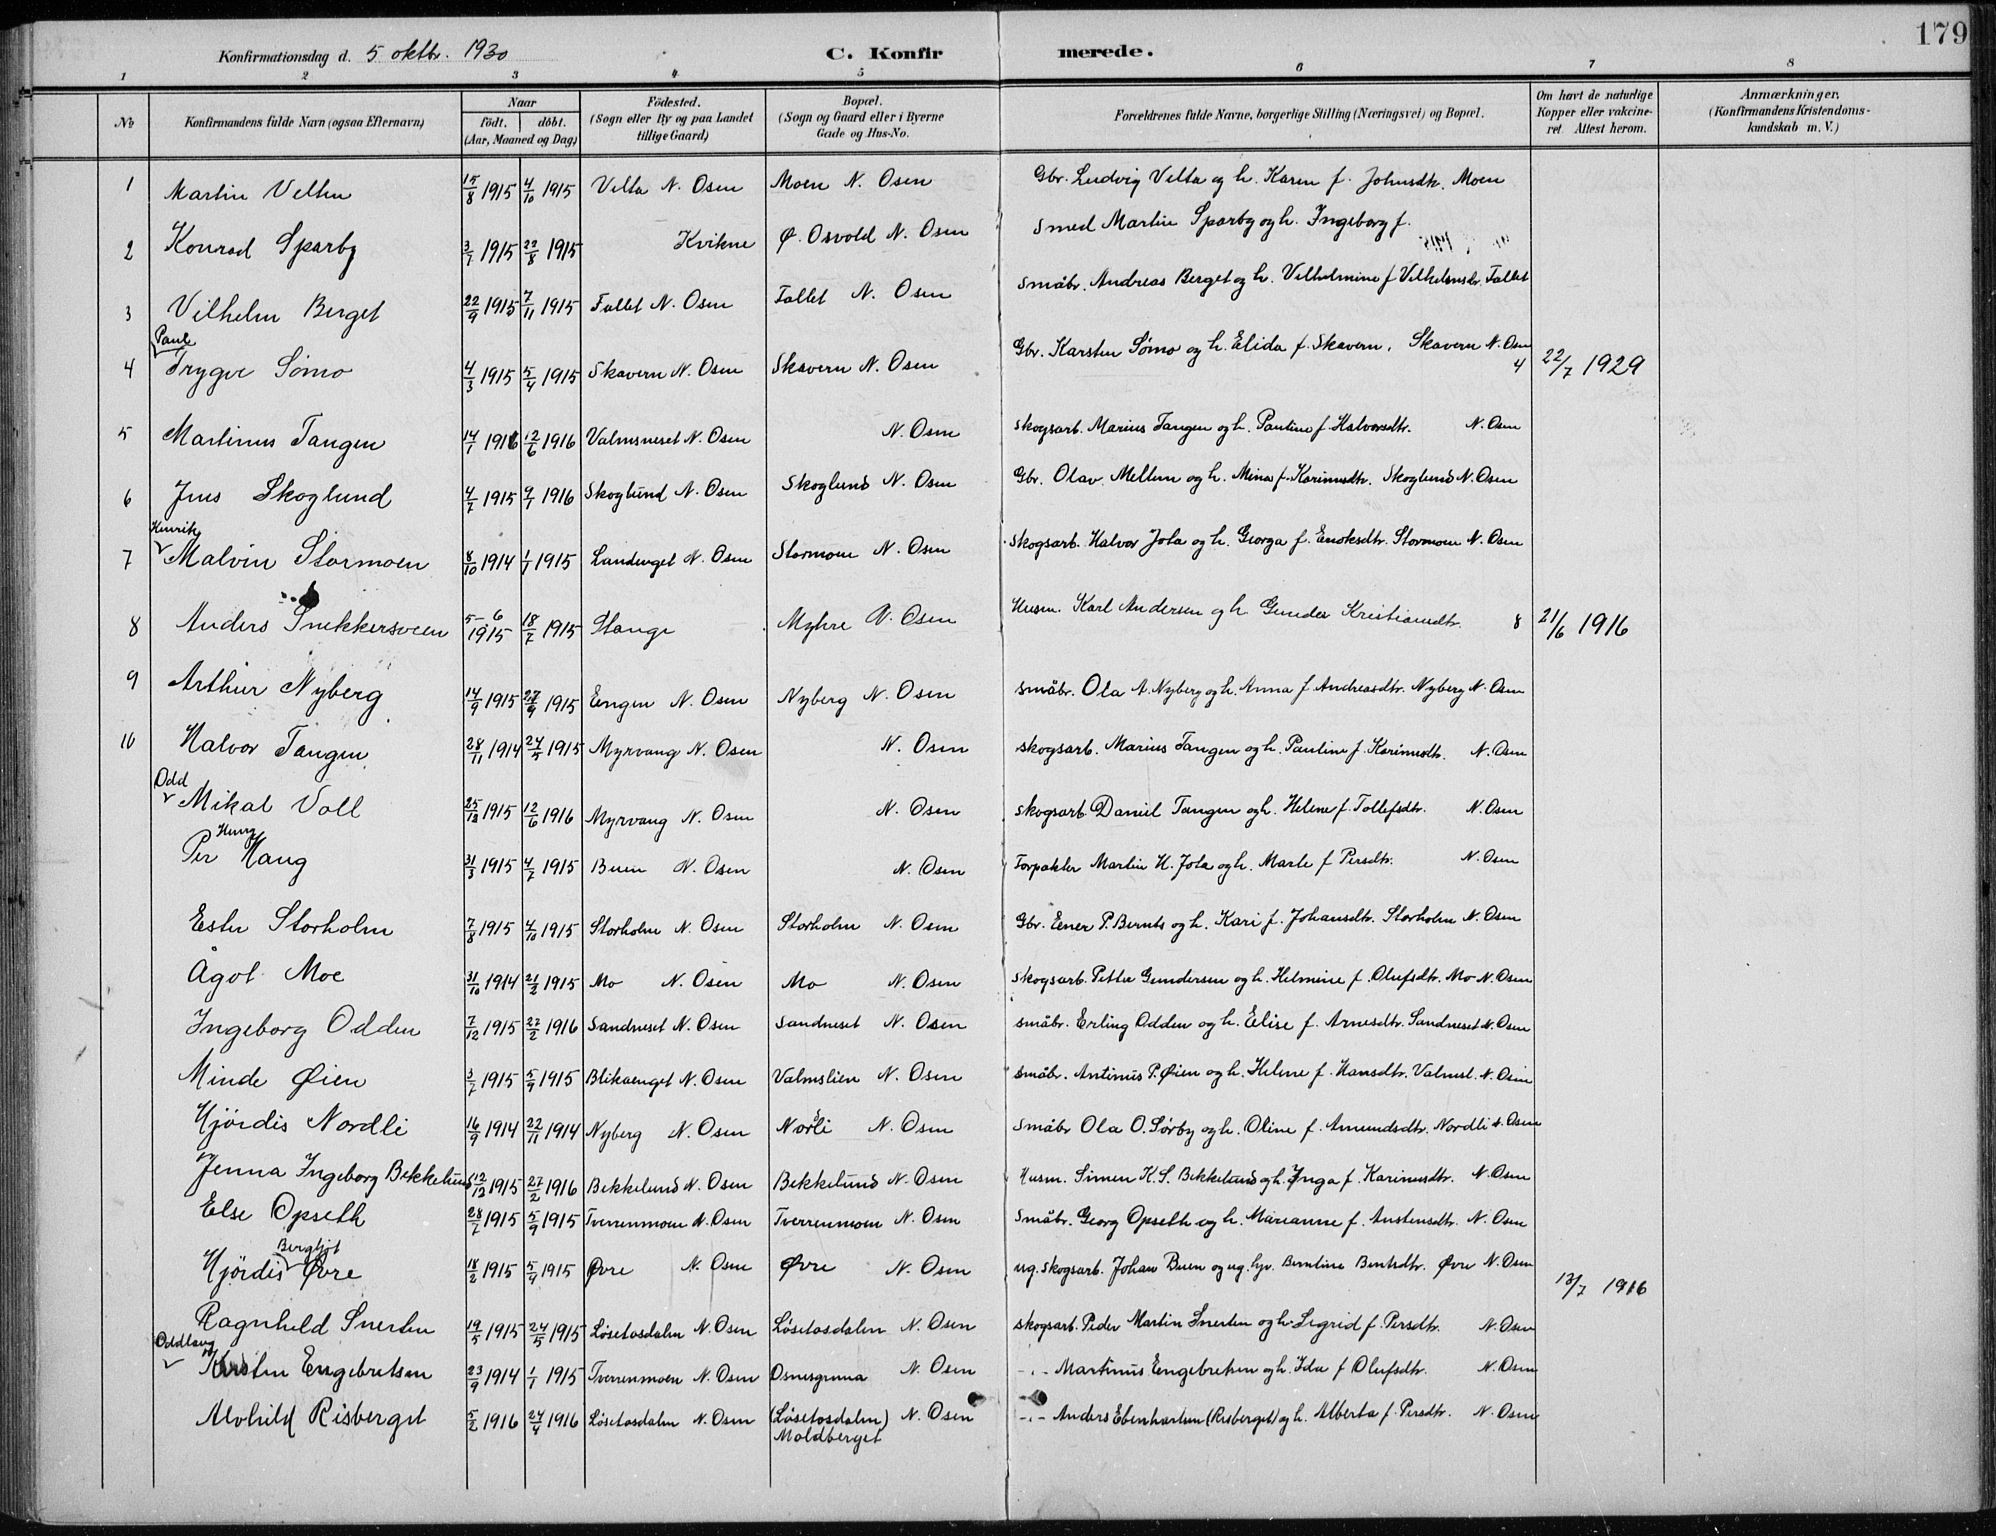 179
Konfirmationsdag d. 5 oktbr. 1930 C. Konfirmerede.
1 2 3 4 5 6 7 8
No Konfirmandens fulde Navn (ogsaa Efternavn) Naar födt. döbt. (Aar, Maaned og Dag) Födested. (Sogn eller By og paa Landet tillige Gaard) Bopæl. (Sogn og Gaard eller i Byerne Gade og Hus-No. Forældrenes fulde Navne, borgerlige Stilling (Næringsvei) og Bopæl. Om havt de naturlige Kopper eller vakcineret. Attest herom. Anmærkninger. (Konfirmandens Kristendomskundskab m. V.)
1 Martin Velta 15/8 1915 4/10 1915 Velta N. Osen Moen N. Osen Gbr. Ludvig Velta og h. Karen f. Johnsdtr. Moen
2 Konrad Sparby 3/7 1915 22/8 1915 Kvikne Ø. Osvold N. Osen Smed Martin Sparby og h. Ingeborg f.
3 Vilhelm Berget 22/9 1915 7/11 1915 Fallet N. Osen Fallet N. Osen Småbr. Andreas Berget og h. Vilhelmine f. Vilhelmsdr. Fallet
Paul
4 Trygve Sømo 4/3 1915 5/4 1915 Skavern N. Osen Skavern N. Osen Gbr. Karsten Sømo og h. Elida f. Skavern, Skavern N. Osen 4 22/7 1929
5 Martinus Tangen 14/1 1916 12/6 1916 Valmsneset N. Osen N. Osen skogsarb. Marius Tangen og h. Pauline f. Halvorsdtr. N. Osen
6 Jens Skoglund 4/7 1915 9/1 1916 Skoglund N. Osen Skoglund N. Osen Gbr. Olav Mellem og h. Mina f. Karinusdtr. Skoglund N. Osen
Henrik
7 Malvin Stormoen 8/10 1914 1/1 1915 Landevget N. Osen Stormoen N. Osen skogsarb. Halvor Jota og h. Georga f. Enoksdtr. Stormoen N. Osen
8 Anders Snekkersveen 5-6 1915 18/7 1915 Stange Myhre N. Osen Husm. Karl Andersen og h. Gunda Kristiansdtr. 8 21/6 1916
9 Arthur Nyberg 14/9 1915 27/9 1915 Engen N. Osen Nyberg N. Osen småbr. Ola A. Nyberg og h. Anna f. Andreasdtr. Nyberg N. Osen
10 Halvor Tangen 28/11 1914 24/5 1915 Myrvang N. Osen N. Osen skogsarb. Marius Tangen og h. Pauline f. Karinusdtr. N. Osen
Odd
Mikal Voll 25/12 1915 12/6 1916 Myrvang N. Osen N. Osen skogsarb. Daniel Tangen og h. Helene f. Tollefsdtr. N. Osen
Henry
Per Haug 31/3 1915 4/7 1915 Buen N. Osen N. Osen Forpakter Martin H. Jota og h. Marte f. Persdtr. N. Osen
Ester Storholm 7/8 1915 4/10 1915 Storholm N. Osen Storholm N. Osen Gbr. Ener P. Bernts og h. Kari f. Johansdtr. Storholm N. Osen
Ågot Moe 31/10 1914 21/2 1915 Mo N. Osen Mo N. Osen skogsarb. Petter Gundersen og h. Helmine f. Olufsdtr. Mo N. Osen
Ingeborg Odden 7/12 1915 27/2 1916 Sandneset N. Osen Sandneset N. Osen småbr. Erling Odden og h. Elise f. Arnesdtr. Sandneset N. Osen
Minde Øien 3/7 1915 5/9 1915 Blikaenget N. Osen Valmslien N. Osen småbr. Antinus P. Øien og h. Helene f. Hansdtr. Valmsl. N. Osen
Hjördis Nordli 16/9 1914 22/11 1914 Nyberg N. Osen Nordli N. Osen småbr Ola O. Sørby og h. Oline f. Amundsdtr. Nordli N. Osen
Jenna Ingeborg Bekkelund 12/12 1915 27/2 1916 Bekkelund N. Osen Bekkelund N. Osen Husm. Simen K. S. Bekkelund og h. Inga f. Karinusdtr. N. Osen
Else Opseth 28/7 1915 5/9 1915 Tverrenmoen N. Osen Tverrenmoen N. Osen Småbr. Georg Opseth og h. Marianne f. Austensdtr. N. Osen
Bergljot
Hjördis Øvre 18/2 1915 5/4 1915 Øvre N. Osen Øvre N. Osen ug. skogsarb. Johan Buen og ug. hjv. Berntine Berntsdtr. Øvre N. Osen 13/7 1916
Ragnhild Snerten 19/5 1915 24/5 1915 Løsetosdalen N. Osen Løsetosdalen N. Osen skogsarb. Peder Martin Snerten og h. Sigrid f. Persdtr. N. Osen
Oddlaug
Kirsten Engebretsen 23/9 1914 1/1 1915 Tverrenmoen N. Osen Osnesgrenna N. Osen -"- Martinus Engebretsen og h. Ida f. Olufsdtr. N. Osen
Alvhild Risberget 5/2 1916 24/4 1916 Løsetosdalen N. Osen (Løsetosdalen) N. Osen -"- Anders Ebenhartsen (Risberget) og h. Alberta f. Persdtr. N. Osen
Moldberget